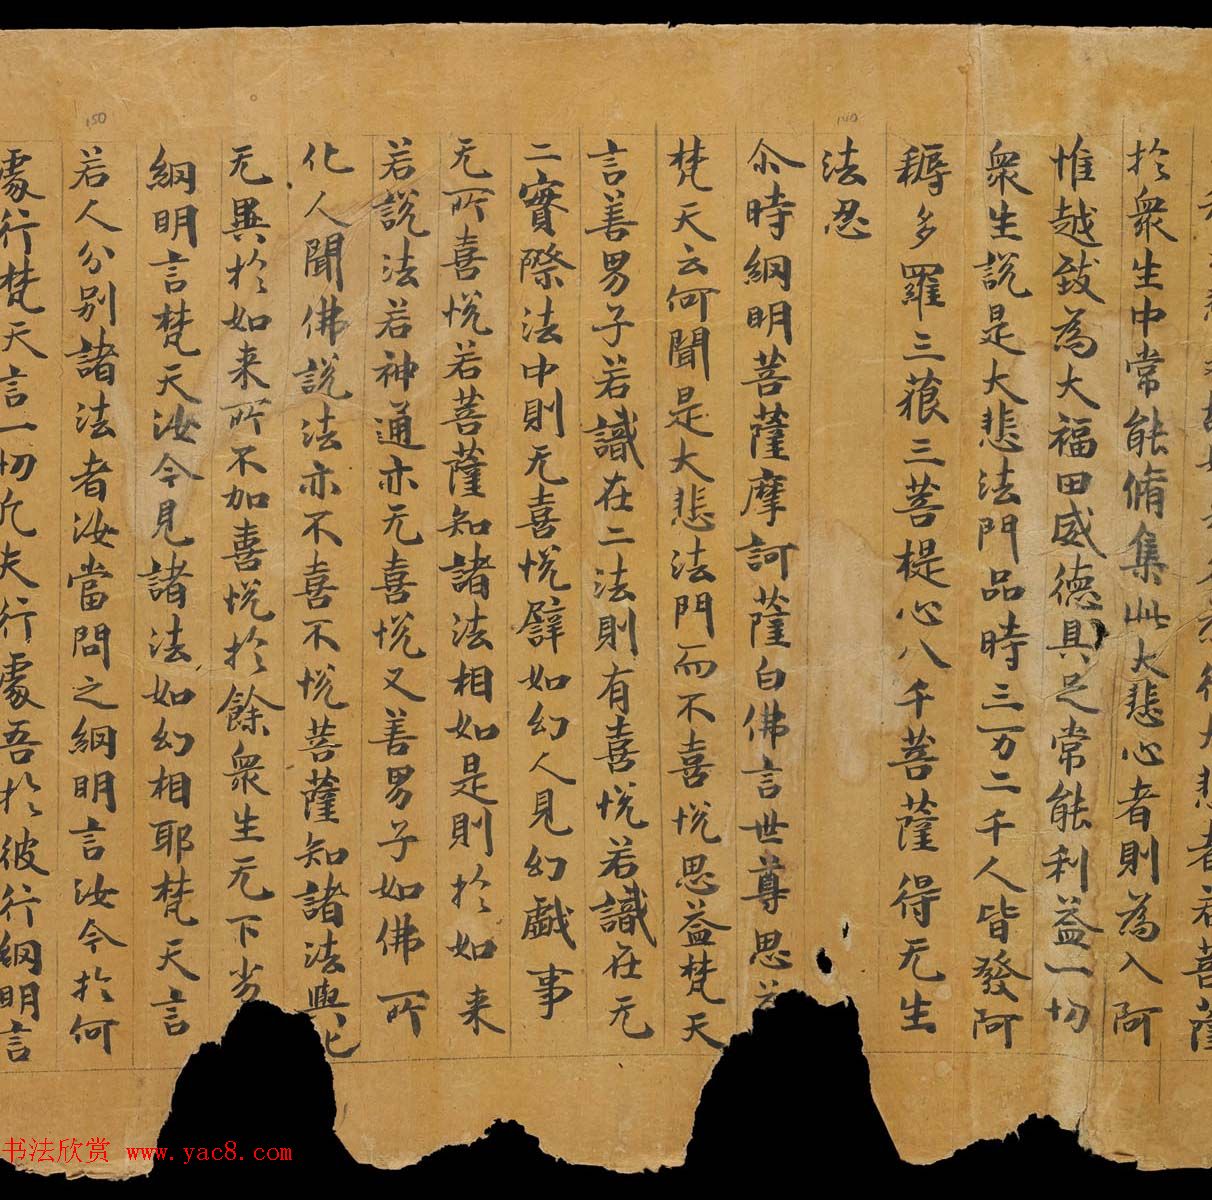 大悲者若菩薩
於衆生中常能脩集此大悲心者則為入阿
惟越致為大福田威德具足常能利益一切
衆生說是大悲法門品時三万二千人皆發阿
耨多羅三藐三菩提心八千菩薩得无生
法忍
尒時網明菩薩摩訶薩白佛言世尊思益
梵天云何聞是大悲法門而不喜悅思益梵天
言善男子若識在二法則有喜悅若識在无
二實際法中則无喜悅譬如幻人見幻戲事
无所喜悅若菩薩知諸法相如是則於如来
若說法若神通亦无喜悅又善男子如佛所
化人聞佛說法亦不喜不悅菩薩知諸法與化
无異於如来所不加喜悅於餘衆生无下劣
網明言梵天汝今見諸法如幻相耶梵天言
若人分别諸法者汝當問之網明言汝今於何
處行梵天言一切凡夫行處吾於彼行網明言
140
150
书法欣赏 www.yac8.com